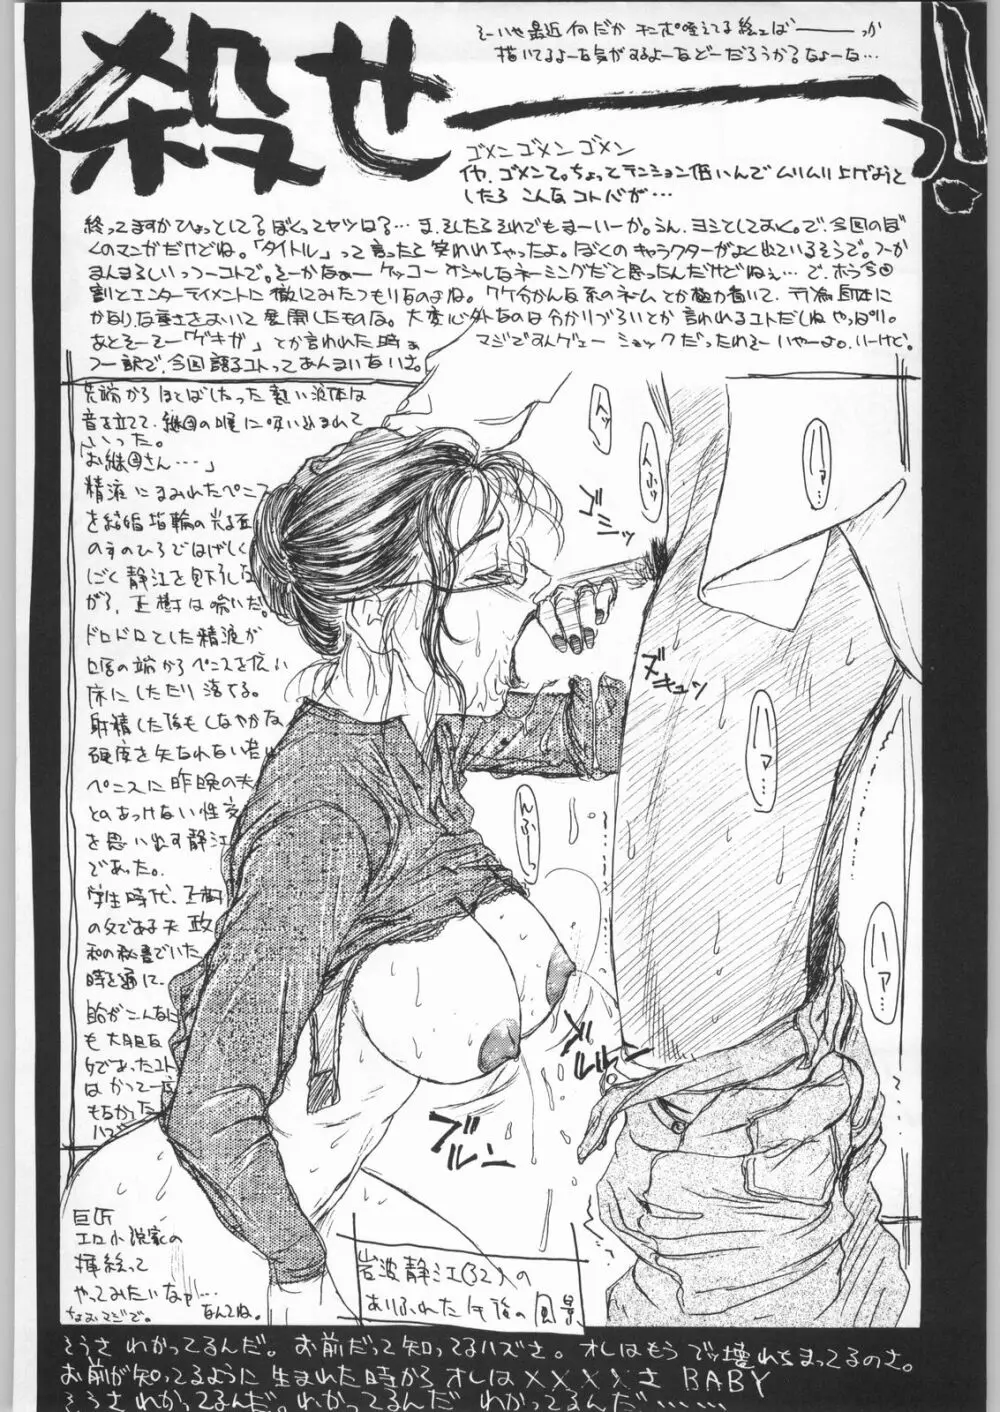 殺せーーっ!!
そーいや最近何だかチンポ咥えてる絵ばーーーーっか
描いてるよーな気がするよーなどーだろうか?なよーな…
ゴメンゴメンゴメン
イヤ、ゴメンて。ちょってテンション低いんでムリムリ上げようと
したら こんなコトバが…
終ってますかひょっとして?ぼくってヤツは?… ま、そしたらそれでもまーいーか。うん、ヨシとしておく。で、今回のぼ
くのマンガだけどね。「タイトル」って言ったら笑われちゃったよ。ぼくのキャラクターがよく出ているそうで。
割とエンターテイメントに徹してみたつもりなのよね。ワケ分かんな系のネームとか極力省いて、
かなりな重きをおいて展開したものな。大変心外なのは分かりづらいとか言われるコトだしねやっぱり。
あとそーそー「ゲキガ」とか言われた時ぁ マジですんゲェー ショックだったわそーいやーよ。いーけど。
つー訳で、今回語るコトってあんまいないさ。
先端からほとばしった熱い液体は
音を立てて、継母の喉に吸い込まれて
いった。
「お継母さん…」
精液にまみれたペニス
を結婚指輪の光る
のすのひらではげしく
しごく静江を見下しな
がら、正樹は喘いだ。
ドロドロとした精液が
口唇の端からペニスを伝い
床にしたたり落てる。
射精した後もしなやかな
硬度を失なわれない若い
ペニスに昨晩の夫
とのあっけない性交
を思い出す静江
であった。
学生時代、正樹
の父である夫 政
和の秘書でいた
時を通じて、
自分がこんなに
も大胆な
女であったコト
はかつて一度
もなかった
ハズ
巨匠
エロ小説家の
挿絵って
やってみたいなァ…
ちょいマジで。 なんてね。
ンッ
んふッ
ゴニッ
ハァ…
ズキュン
ハァ…
んふーっ
ハァ…
ブルン
ブルンッ
岩波静江(32)の
ありふれた午後の風景
そうさ わかってるんだ。お前だって知ってるハズさ。オレはもう でッ壊れちまってるのさ。
お前が知ってるように 生まれた時から オレは××××さ BABY
そうさ わかってるんだ。わかってるんだ わかってるんだ……